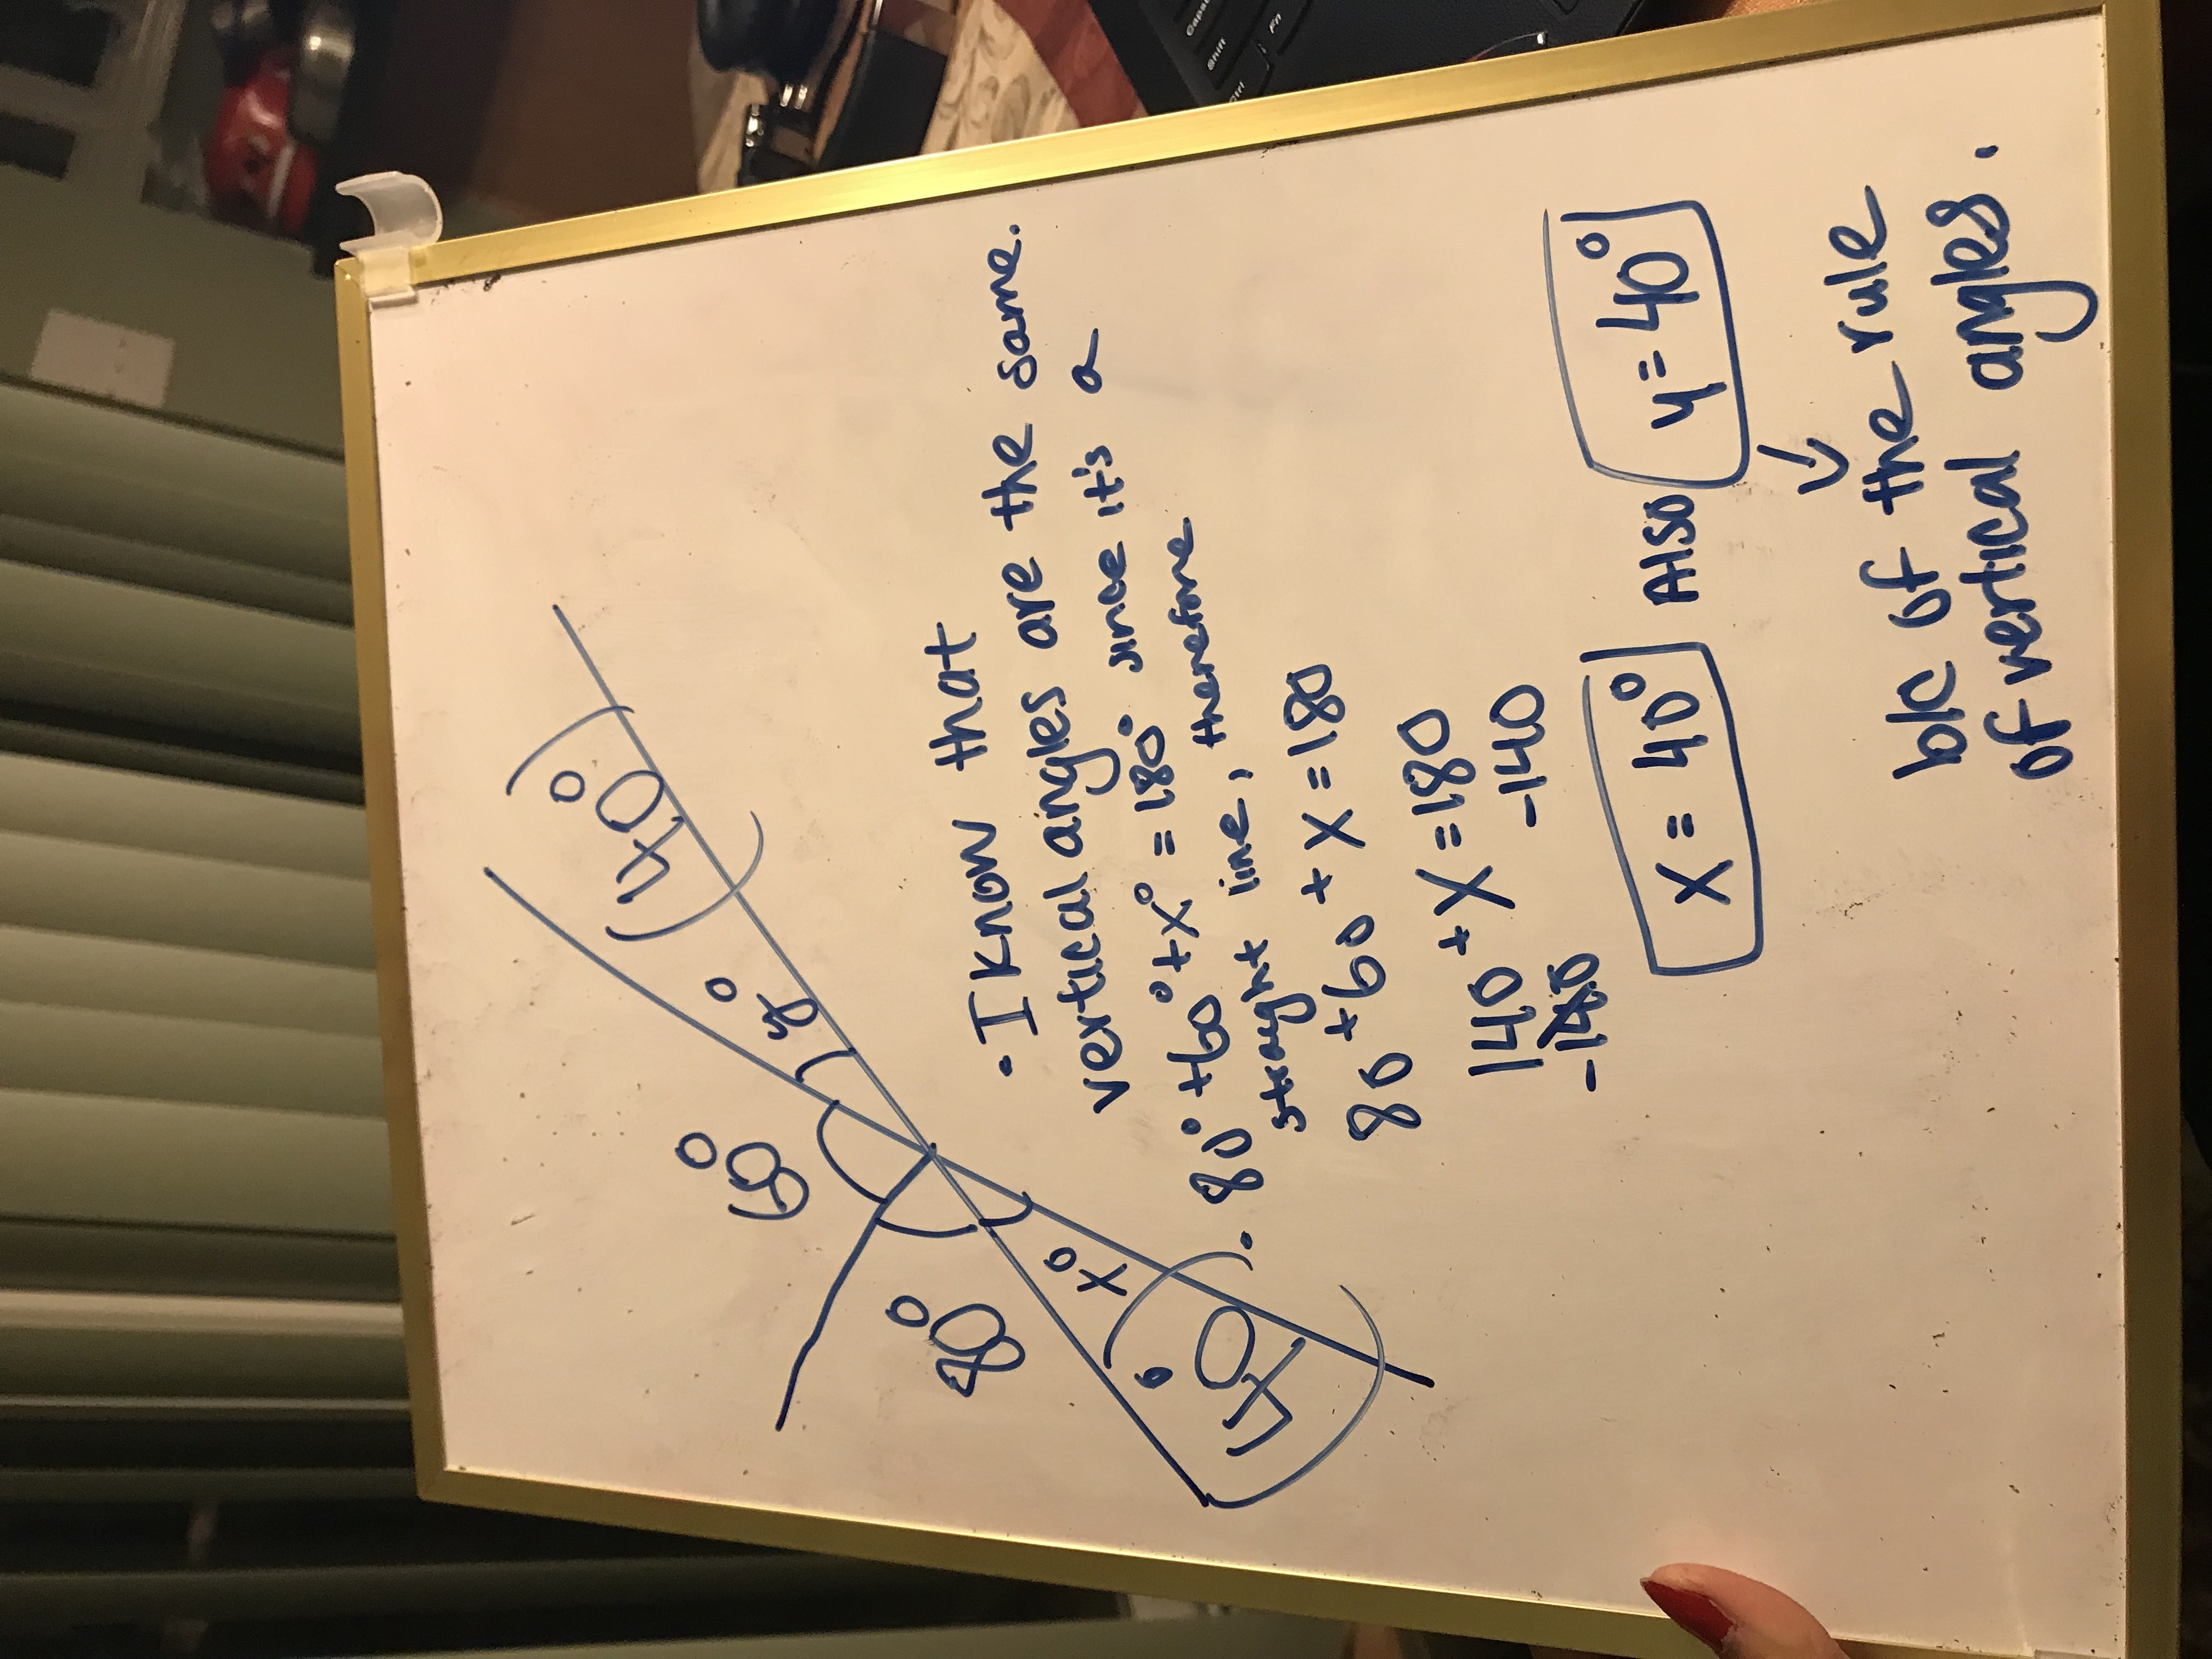 60°
80°
y°
(40°)
x°
(40°)
• I know that
vertical angles are the same.
• 80° + 60° + x° = 180° since it's a
straight line, therefore
80 + 60 + x = 180
140 + x = 180
-140 -140
x = 40° Also y = 40°
b/c of the rule
of vertical angles.
Caps
Shift
Fn
Ctrl